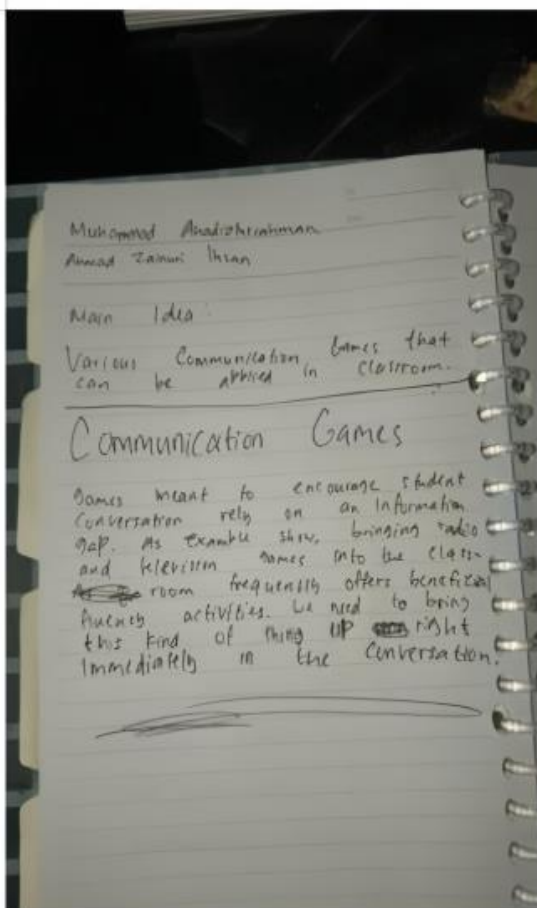 Muhammad
Ahmad Zainuri Ihsan
Main Idea :
Various Communication Games that
can be applied in classroom.
Communication Games
Games meant to encourage student
Conversation rely on an Information
gap. As example show, bringing radio
and television games into the class-
room frequently offers beneficial
fluency activities. We need to bring
this kind of thing up right
Immediately in the Conversation.